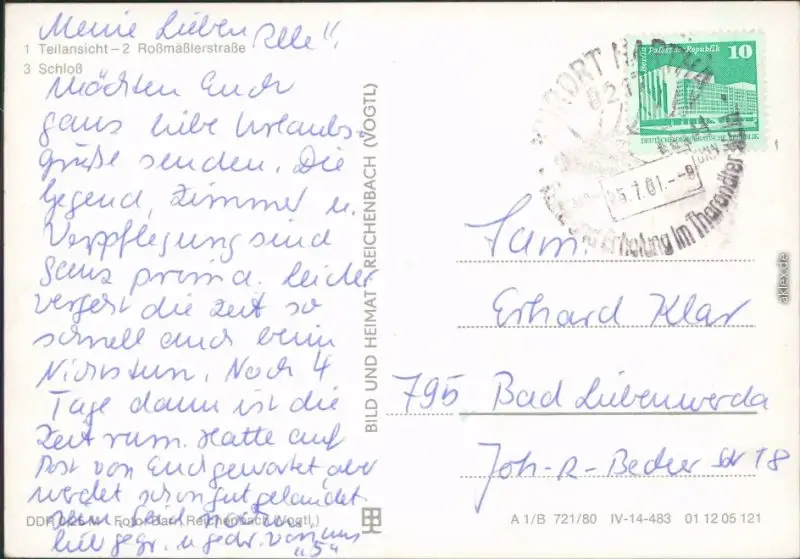 Meine Lieben Alle".
1 Teilansicht – 2 Roßmäßlerstraße
3 Schloß
Möchten Euch
ganz liebe Urlaubs-
grüße senden. Die
Gegend, Zimmer u.
Verpflegung sind
ganz prima. Leider
vergeht die Zeit so
schnell auch beim
Nichtstun. Noch 4
Tage dann ist die
Zeit rum. Hatte auf
Post von Euch gewartet, aber
werdet schon gut gelandet
sein.
lieb gegr. u. gedr. von uns
"5"
DDR 0,25 M Foto: Barn, Reichenbach (Vogtl.)
BILD UND HEIMAT REICHENBACH (VOGTL)
Berlin Palast der Republik 10
DEUTSCHE DEMOKRATISCHE REPUBLIK
KURORT HARTHA
und Erholung im Tharandter
Fam.
Erhard Klar
795 Bad Liebenwerda
Joh.-R.-Becher Str 18
A 1/B 721/80 IV-14-483 01 12 05 121
aklex.de